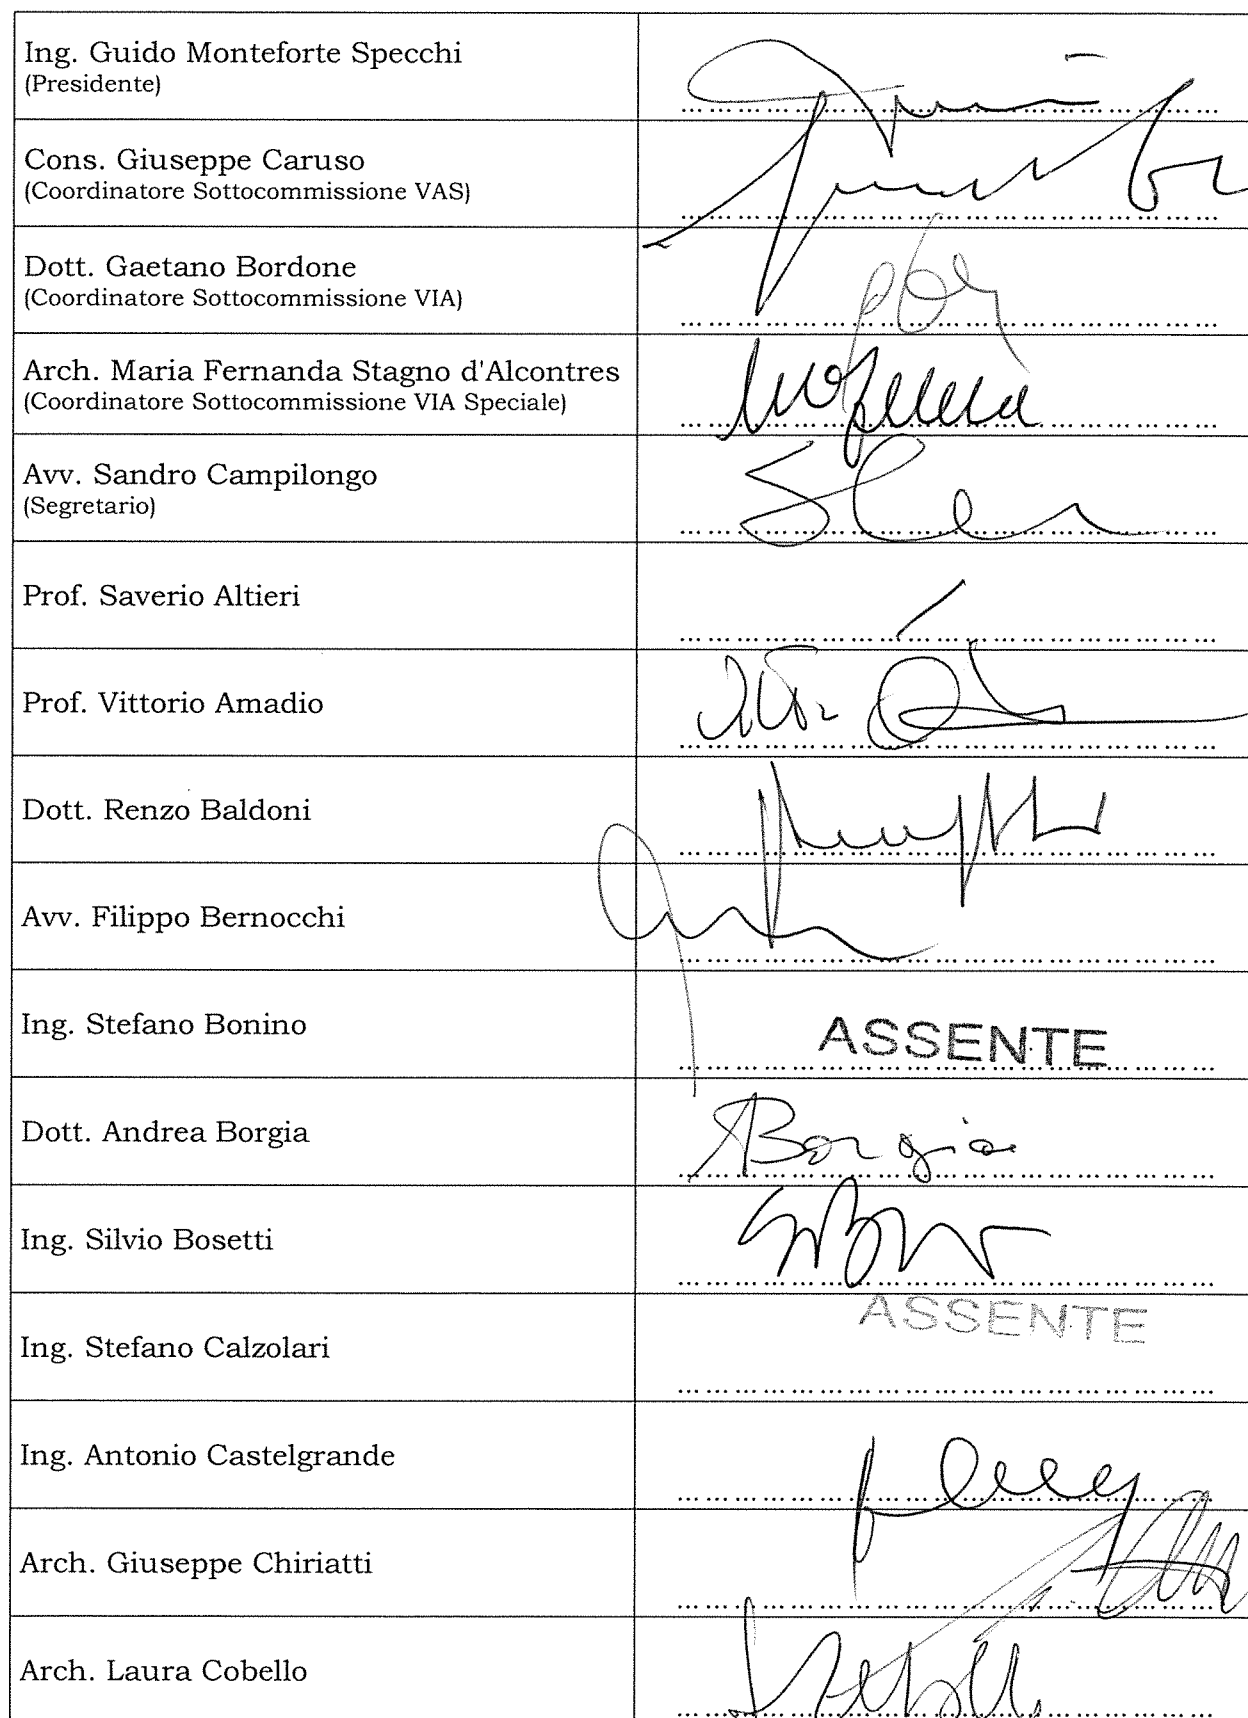 Ing. Guido Monteforte Specchi
(Presidente)
Cons. Giuseppe Caruso
(Coordinatore Sottocommissione VAS)
Dott. Gaetano Bordone
(Coordinatore Sottocommissione VIA)
Arch. Maria Fernanda Stagno d'Alcontres
(Coordinatore Sottocommissione VIA Speciale)
Avv. Sandro Campilongo
(Segretario)
Prof. Saverio Altieri
Prof. Vittorio Amadio
Dott. Renzo Baldoni
Avv. Filippo Bernocchi
Ing. Stefano Bonino
ASSENTE
Dott. Andrea Borgia
ABorgia
Ing. Silvio Bosetti
ASSENTE
Ing. Stefano Calzolari
Ing. Antonio Castelgrande
Arch. Giuseppe Chiriatti
Arch. Laura Cobello